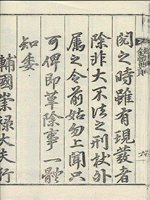 閱之時雖有現發者
除非大不法之刑杖外
属之令前姑勿上聞只
可俾即革除事一體
知委
輔國崇祿大夫行